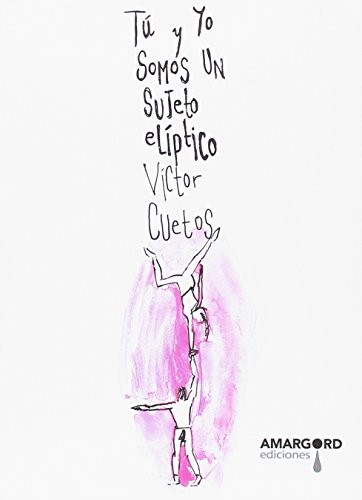 Tú y Yo
SOMOS UN
SUJeto
elíptico
Víctor
Cuetos
AMARGORD
ediciones